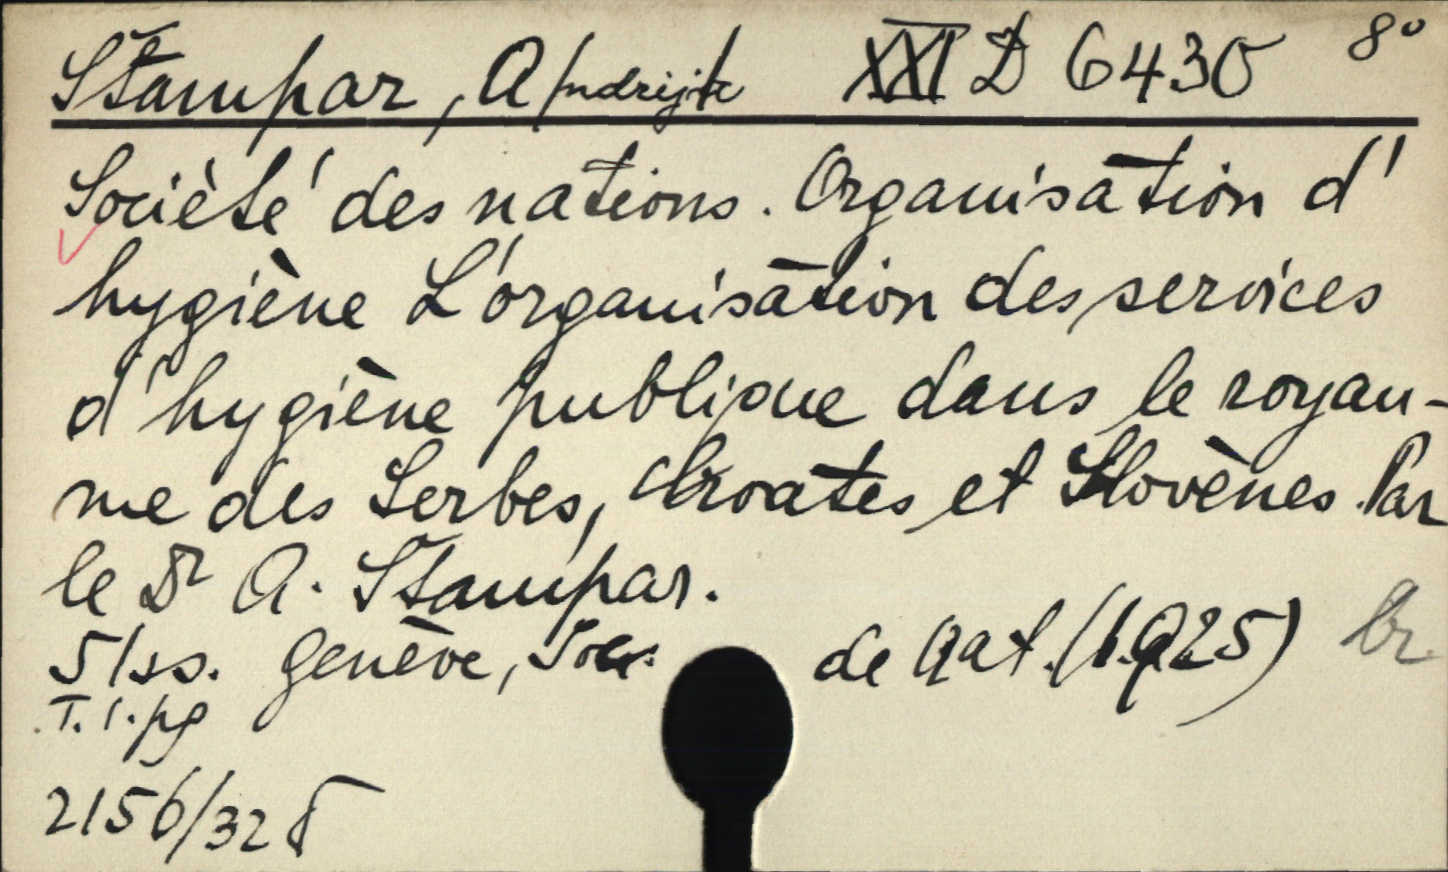 Štampar, A/ndrija/ XXI D 6430 8°
Sociètè des nations. Organisation d'
hygiène L'organisation des services
d'hygiène publique dans le royau-
me des Serbes, Croates et Slovènes. Par
le Dr A. Štampar.
51ss. Genève, Soc. de Nat. (1925) br.
T. I. pg
2156/32